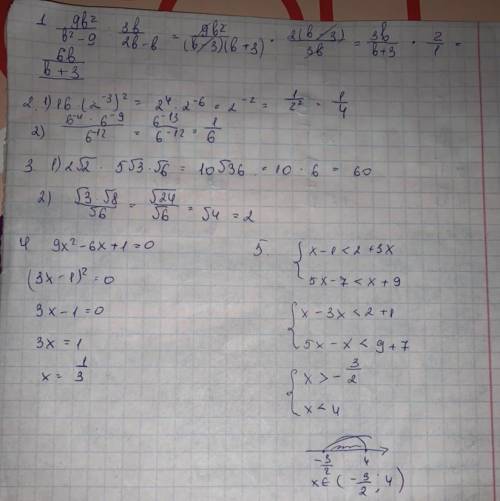 1. 9b²/(b²-9) : 3b/(2b-6) = 9b²/((b-3)(b+3)) · 2(b-3)/3b = 3b/(b+3) · 2/1 =
6b/(b+3)
2. 1) 16 · (2⁻³)² = 2⁴ · 2⁻⁶ = 2⁻² = 1/2² = 1/4
2) (6⁻⁴ · 6⁻⁹)/6⁻¹² = 6⁻¹³/6⁻¹² = 1/6
3. 1) 2√2 · 5√3 · √6 = 10√36 = 10 · 6 = 60
2) (√3 · √8)/√6 = √24/√6 = √4 = 2
4 9x² - 6x + 1 = 0
(3x - 1)² = 0
3x - 1 = 0
3x = 1
x = 1/3
5. { x - 1 < 2 + 3x
5x - 7 < x + 9
{ x - 3x < 2 + 1
5x - x < 9 + 7
{ x > - 3/2
x < 4
-3/2 4 x
x ∈ (-3/2 ; 4)